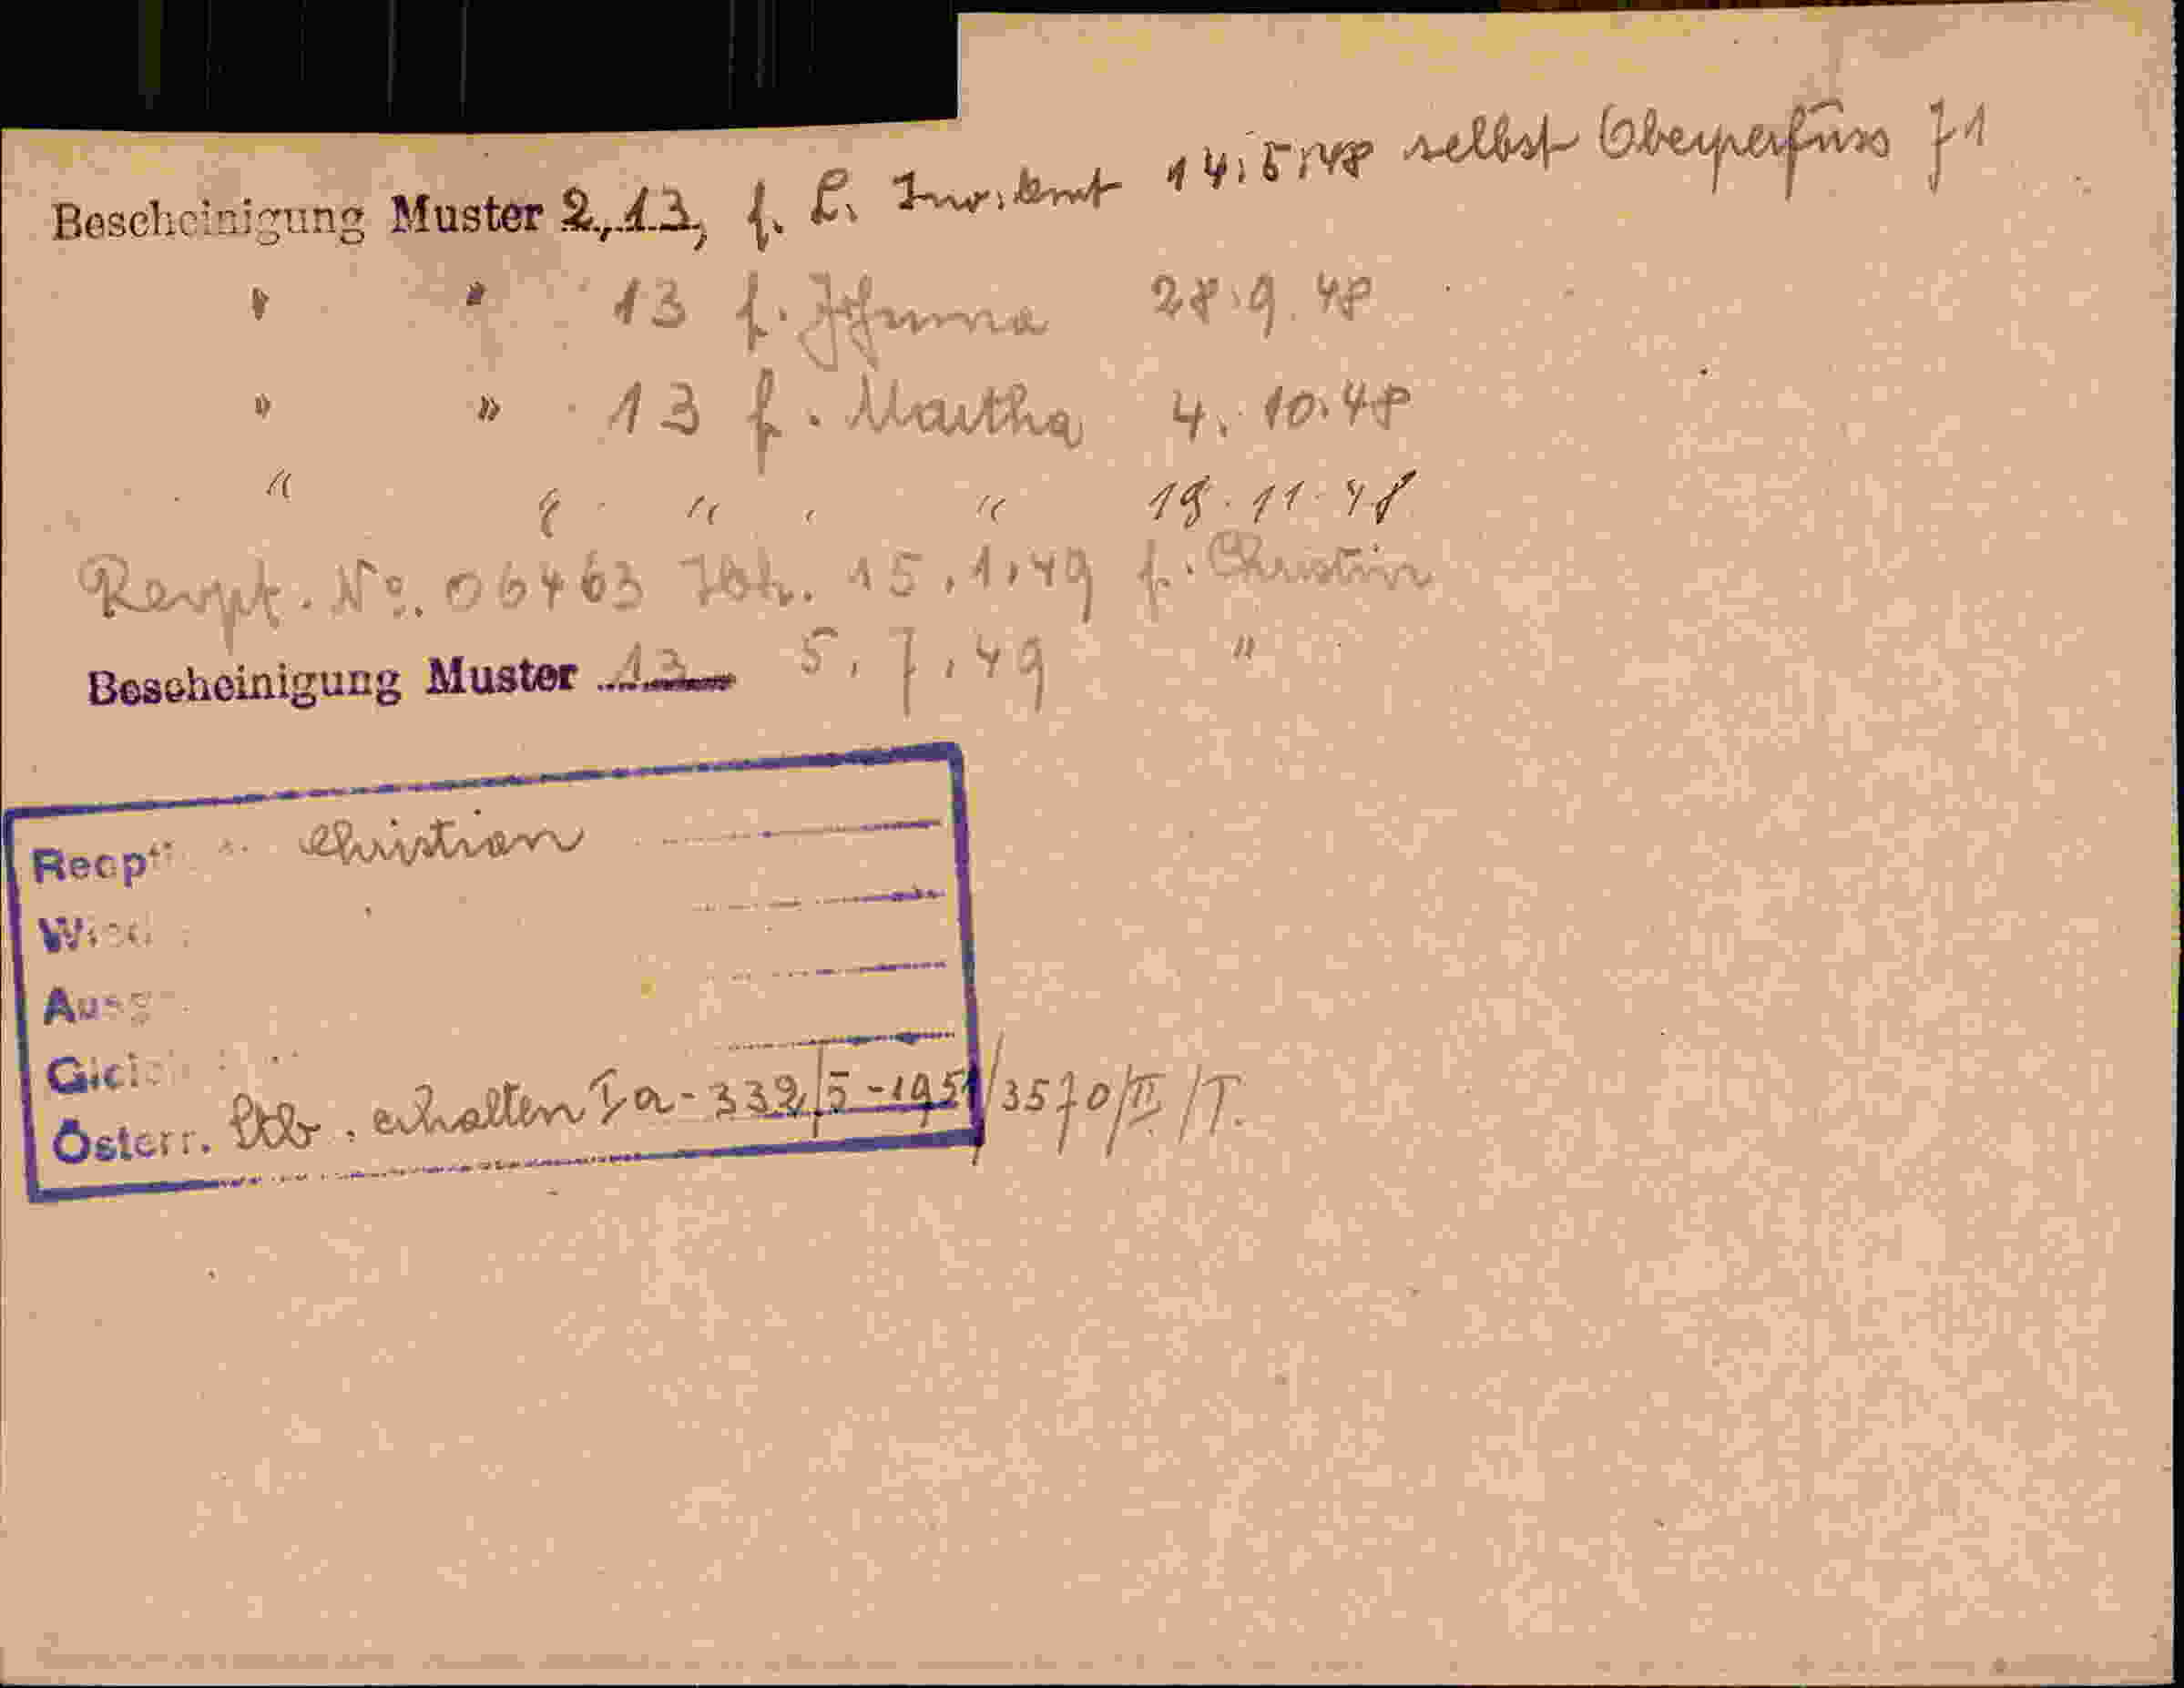 Bescheinigung Muster 2, 13, f. L. 14.5.48 selbst Oberperfuss 71
" " 13 f. Johanna 28.9.48
" " 13 f. Martha 4.10.48
" " " 19.11.48
Rempt. No. 06463 15.1.49 f. Christian
Bescheinigung Muster 13 5.7.49 "
Christian
Österr. Stb. erhalten Ia-332/5-1951/3570/II/T.